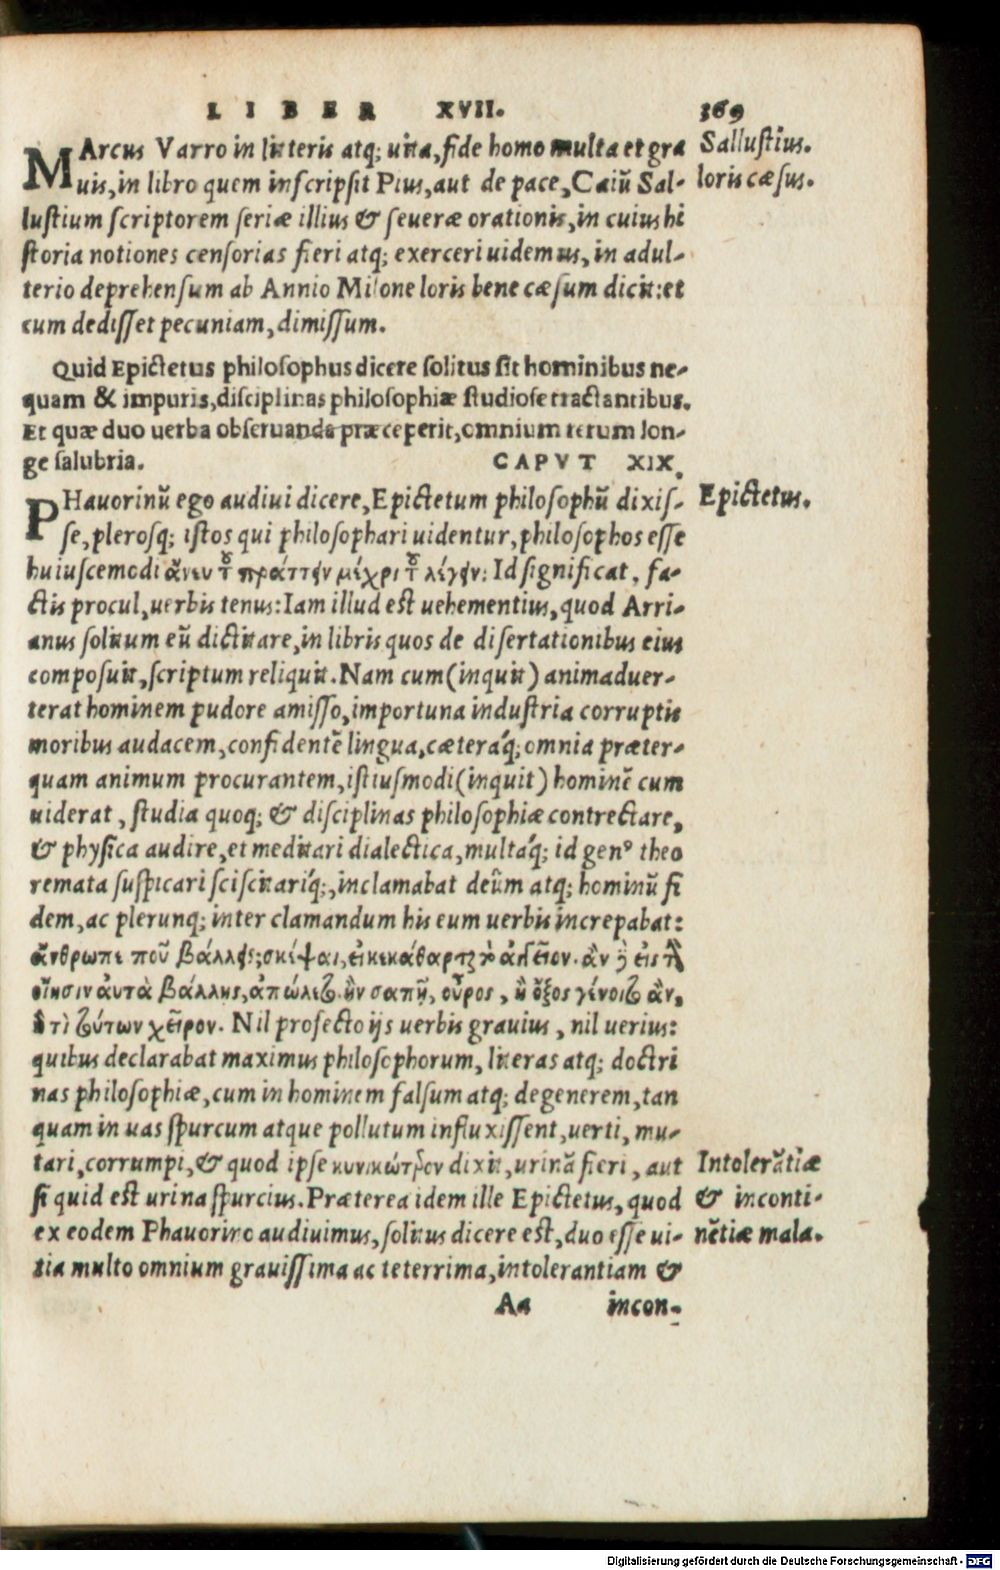 LIBER XVII. 369
MArcus Varro in literis atq; uita, fide homo multa et gra
uis, in libro quem inscripsit Pius, aut de pace, Caiũ Sal-
lustium scriptorem seriæ illius & seueræ orationis, in cuius hi
storia notiones censorias fieri atq; exerceri uidemus, in adul-
terio deprehensum ab Annio Milone loris bene cæsum dicit: et
cum dedisset pecuniam, dimissum.
Sallustius.
loris cæsus.
Quid Epictetus philosophus dicere solitus sit hominibus ne-
quam & impuris, disciplinas philosophiæ studiose tractantibus.
Et quæ duo uerba obseruanda præceperit, omnium rerum lon-
ge salubria. CAPVT XIX.
PHauorinũ ego audiui dicere, Epictetum philosophũ dixis-
se, plerosq; istos qui philosophari uidentur, philosophos esse
huiuscemodi ἄνευ τ͂ȣ πράττειν μέχρι τ͂ȣ λέγειν: Id significat, fa-
ctis procul, uerbis tenus: Iam illud est uehementius, quod Arri-
anus solitum eũ dictitare, in libris quos de disertationibus eius
composuit, scriptum reliquit. Nam cum (inquit) animaduer-
terat hominem pudore amisso, importuna industria corruptis
moribus audacem, confidentẽ lingua, cæteráq; omnia præter-
quam animum procurantem, istiusmodi (inquit) hominẽ cum
uiderat, studia quoq; & disciplinas philosophiæ contrectare,
& physica audire, et meditari dialectica, multáq; id genꝰ theo
remata suspicari sciscitariq́;, inclamabat deûm atq; hominũ fi
dem, ac plerunq; inter clamandum his eum uerbis increpabat:
ἄνθρωπε ποῦ βάλλεις; σκέψαι, εἰ κεκάθαρται τὸ ἀγγεῖον. ἂν γὸ εἰς τὴν
οἴησιν ἀυτὰ βάλλης, ἀπώλετο. ἢν σαπῇ, οὖρος, ἢ ὄξος γένοιτο ἂν,
ἤ τὶ τούτων χεῖρον. Nil profecto ijs uerbis grauius, nil uerius:
quibus declarabat maximus philosophorum, literas atq; doctri
nas philosophiæ, cum in hominem falsum atq; degenerem, tan
quam in uas spurcum atque pollutum influxissent, uerti, mu-
tari, corrumpi, & quod ipse κυνικώτερον dixit, urinã fieri, aut
si quid est urina spurcius. Præterea idem ille Epictetus, quod
ex eodem Phauorino audiuimus, solitus dicere est, duo esse ui-
tia multo omnium grauissima ac teterrima, intolerantiam &
Epictetus.
Intolerãtiæ
& inconti-
nẽtiæ mala.
Aa incon-
Digitalisierung gefördert durch die Deutsche Forschungsgemeinschaft - DFG